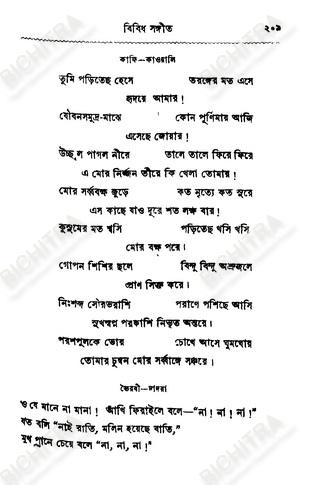 বিবিধ সঙ্গীত ২০৯
কাফি—কাওয়ালি
তুমি পড়িতেছ হেসে তরঙ্গের মত এসে
হৃদয়ে আমার !
যৌবনসমুদ্র-মাঝে কোন পূর্ণিমায় আজি
এসেছে জোয়ার !
উচ্ছ্বল পাগল নীরে তালে তালে ফিরে ফিরে
এ মোর নির্জ্জন তীরে কি খেলা তোমার !
মোর সর্ব্ববক্ষ জুড়ে কত নৃত্যে কত সুরে
এস কাছে যাও দূরে শত লক্ষ বার !
কুসুমের মত শ্বসি পড়িতেছ খসি খসি
মোর বক্ষ পরে।
গোপন শিশির ছলে বিন্দু বিন্দু অশ্রুজলে
প্রাণ সিক্ত করে।
নিঃশব্দ সৌরভরাশি পরাণে পশিছে আসি
সুখস্বপ্ন পরকাশি নিভৃত অন্তরে।
পরশপুলকে ভোর চোখে আসে ঘুমঘোর
তোমার চুম্বন মোর সর্ব্বাঙ্গে সঞ্চরে।
ভৈরবী—দাদরা
ও যে মানে না মানা ! আঁখি ফিরাইলে বলে—“না ! না ! না !”
যত বলি “নাই রাতি, মলিন হয়েছে বাতি,”
মুখ পানে চেয়ে বলে “না, না, না !”
BICHITRA